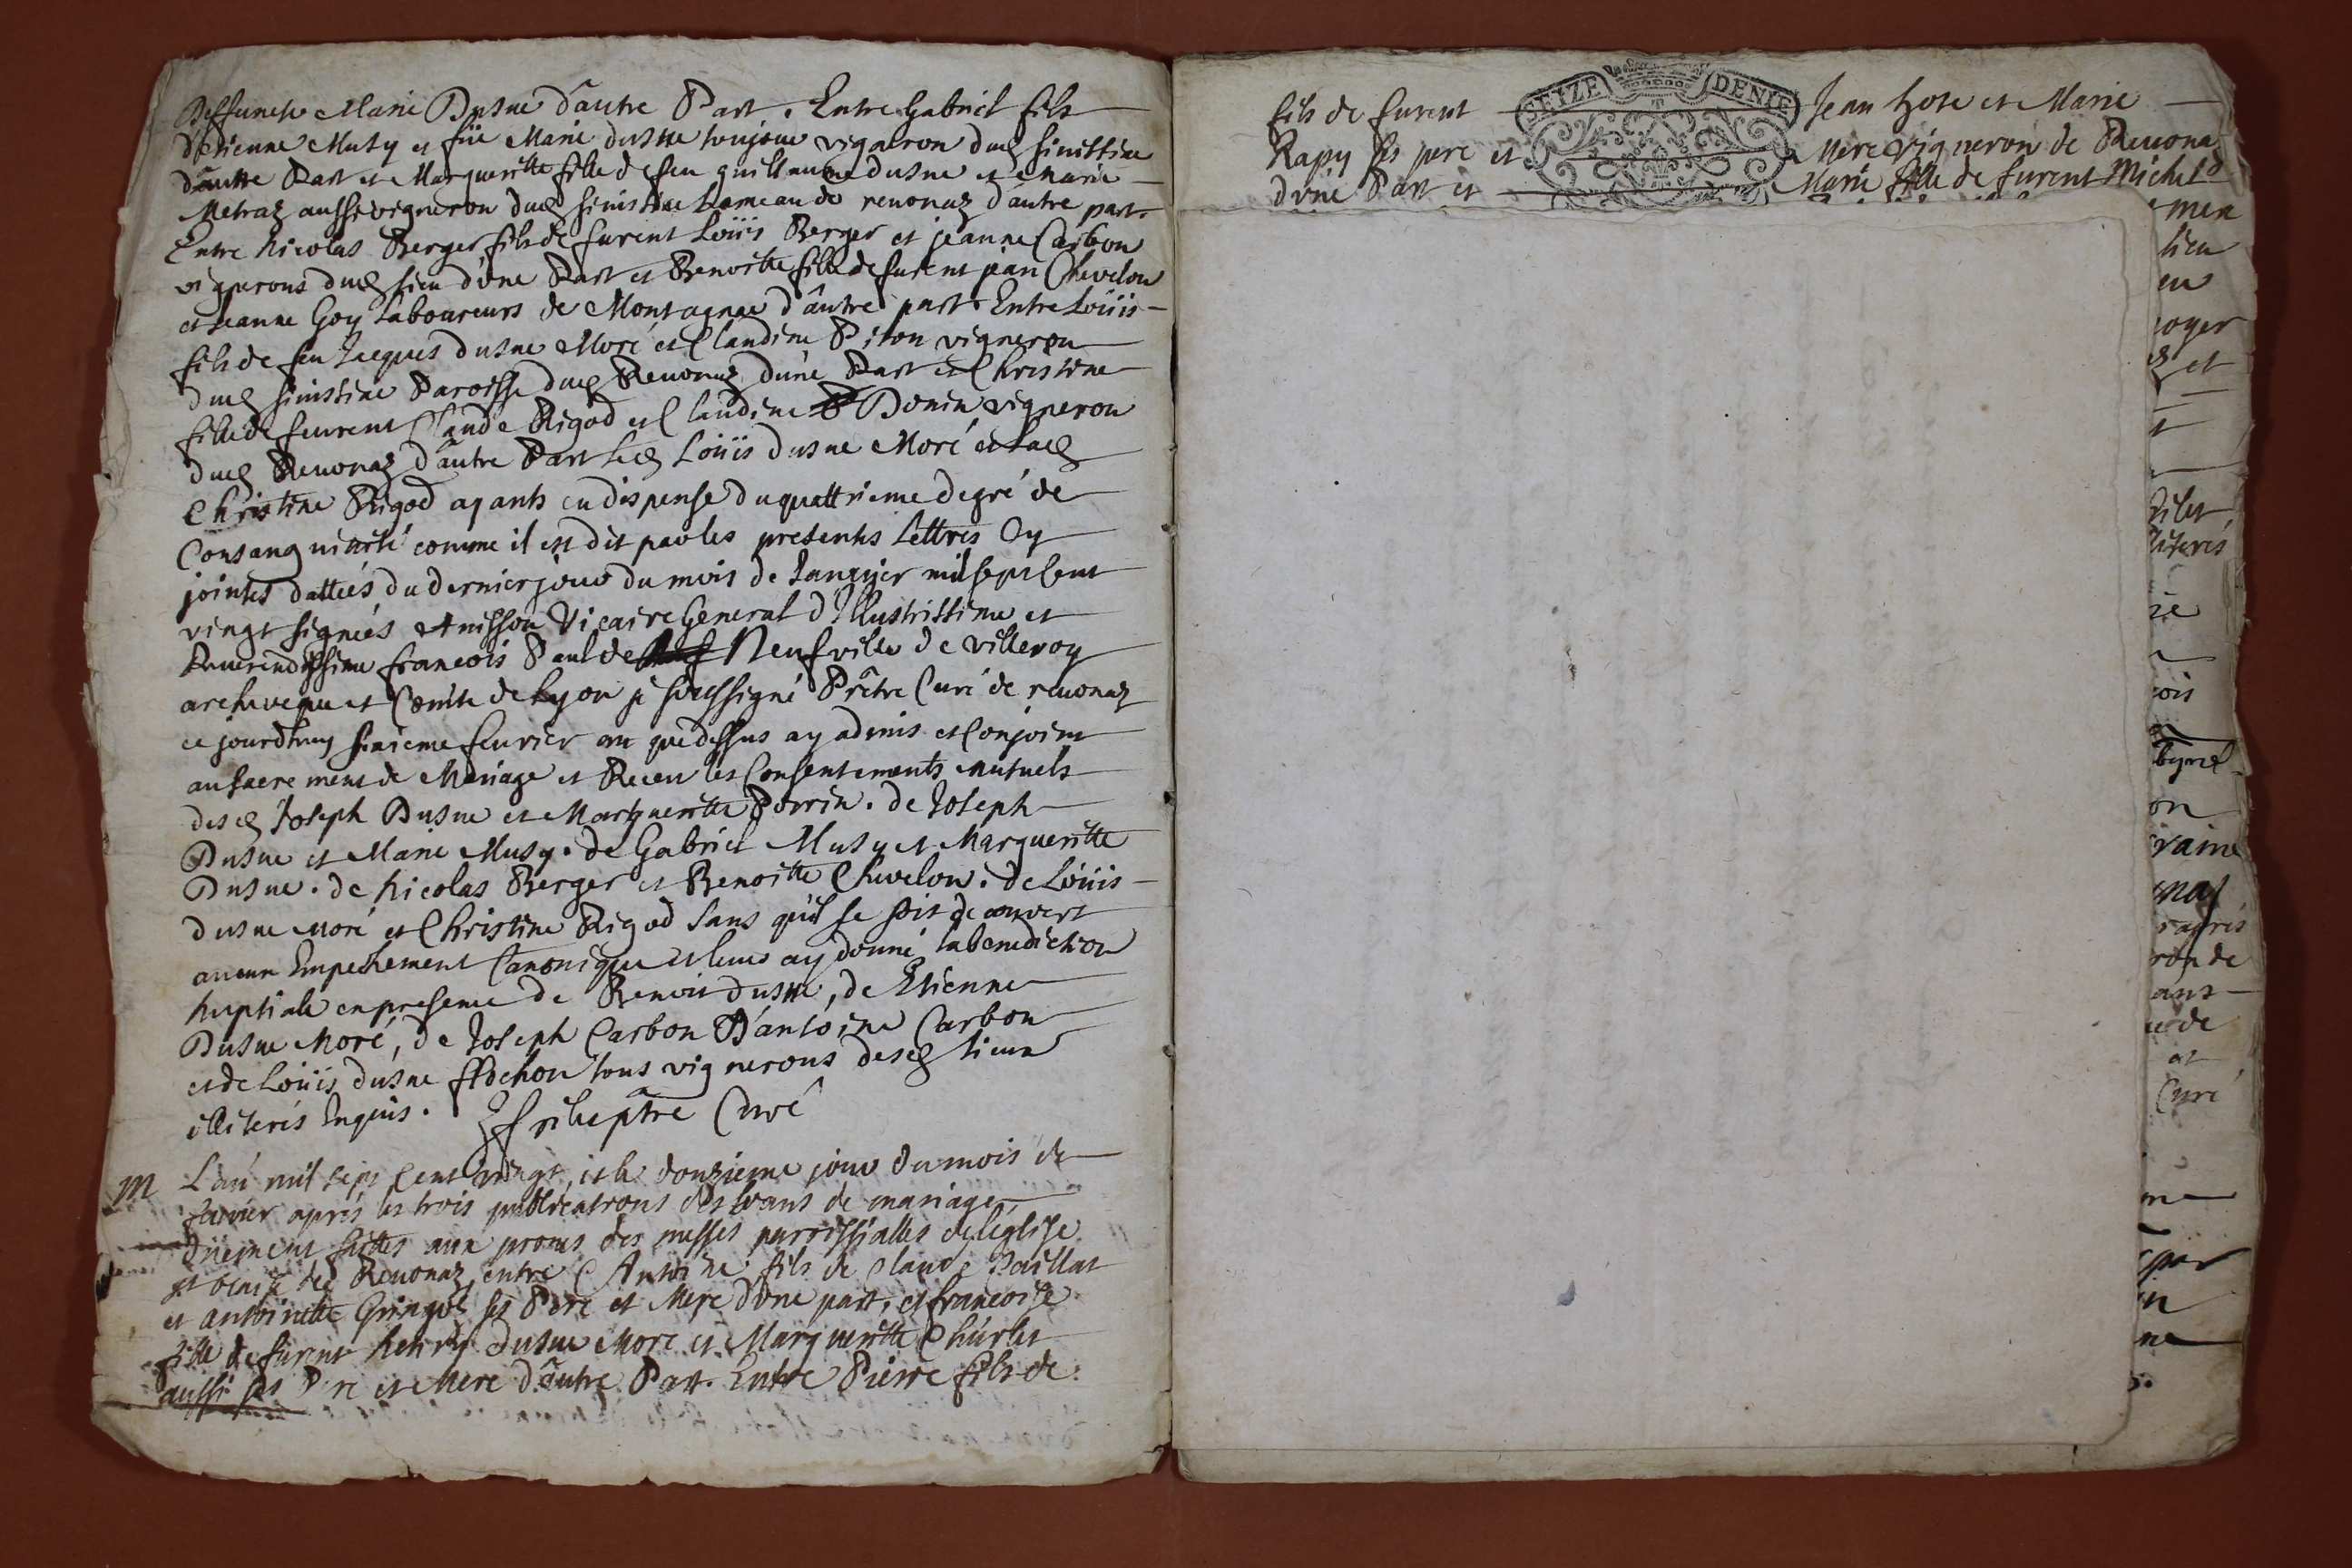 Deffunete Marie Dusne d'autre Part. Entre Gabriel fils
d'etienne Musy et füe Marie dusne toujour vigneron dud sinistine
d'autre Part et Margueritte fille de feu guillaume dusne et Marie
Metraz aussi vigneron dud sinistine hameau de reuonaz d'autre part.
Entre Nicolas Berger fils de furent Loüis Berger et jeanne Carbon
vignerons dud lieu d'une Part et Benoitte fille de furent jean Chevelon
et jeanne Goy laboureurs de Montagnae d'autre part. Entre Loüis
fils de feu Jacques dusne Moré et Claudine Piton vigneron
dud sinistine Paroisse dud Reuonaz d'une Part et Christine
fille de feurent Claude Rigod et Claudine Bonin vigneron
dud Reuonaz d'autre Part led Loüis dusne Moré et lad
Christine Rigod ayants eu dispense du quattrieme degré de
Consanguinité comme il est dit par les presentes Lettres Cy
jointes dattées du dernier jour du mois de Januier mil sept Cent
vingt signées Anisson Vicaire General d'Illustrissime et
Reuerendissime francois Paul de Neufville de villeroy
archeveque et Comte de Lyon je soussigné Prêtre Curé de reuonaz
ce jourdhuy sixieme feurier an que dessus ay admis et Conjoint
au sacrement de Mariage et Receu les Consentements Mutuels
desd Joseph Dusne et Margueritte Perrin. de Joseph
Dusne et Marie Musy. de Gabriel Musy et Margueritte
Dusne. de Nicolas Berger et Benoitte Chevelon. de Loüis
dusne Moré et Christine Rigod sans qu'il se soit decouvert
aucun Empechement Canonique et leurs ay donné la benediction
Nuptiale en presence de Benoit dusne, de Etienne
Dusne Moré, de Joseph Carbon D'antoine Carbon
et de Loüis dusne tous vignerons desd lieux
illiterés Enquis. ptre Curé
M L'an mil sept Cent vingt, et le douzieme jour du mois de
feurier aprés les trois publications des bans de mariage
düement faittes aux prones des messes parroissialles de l'église
st de Reuonaz entre Antoine fils de Claude Paillat
et antoinette ses Pere et Mere d'une part, et francoise
fille de furent henry dusne Moré et Margueritte Churlet
aussi ses Pere et Mere d'autre Part. Entre Pierre fils de
fils de furent Jean et Marie
Rapy ses pere et Mere vigneron de Reuonaz
d'une Part et Marie fille de furent Michel d
SEIZE DENIE
men
lieu
en
oyer
et
ilet
literés
ie
ois
on
raine
naz
aprés
ron de
ans
ede
et
Curé
ne
par
in
ne